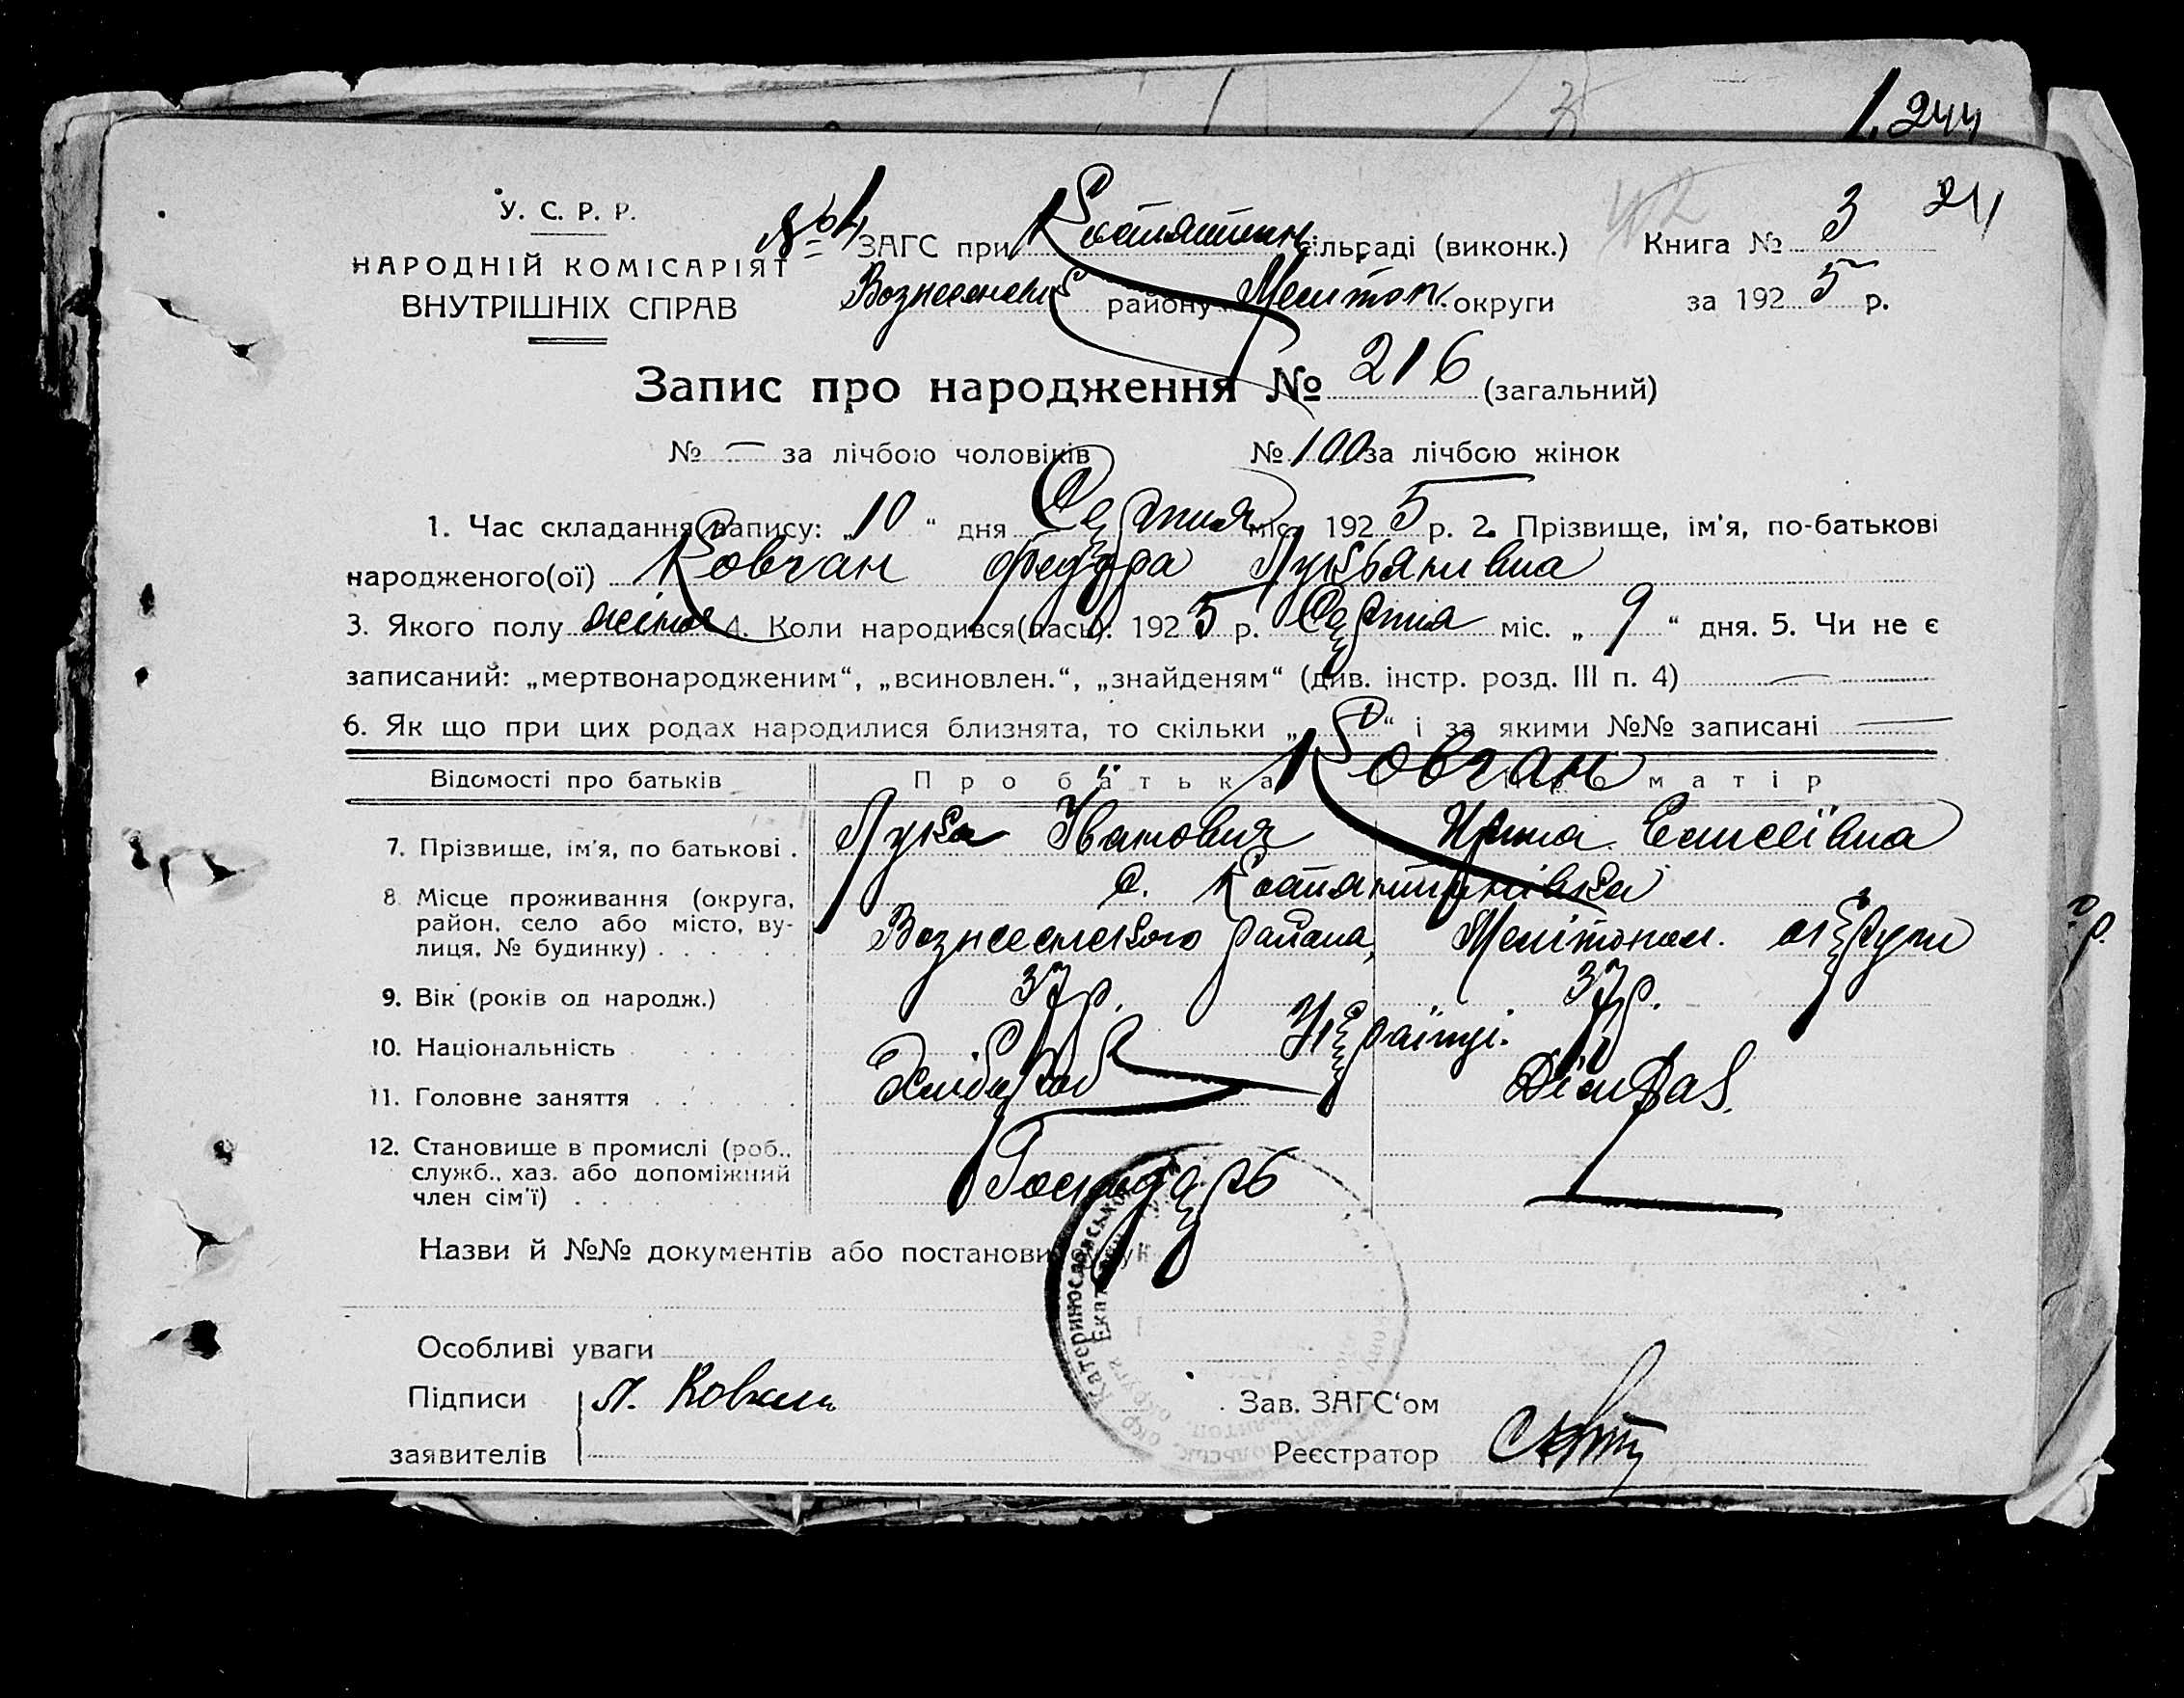 1.244
У. С. Р. Р.
НАРОДНІЙ КОМІСАРІЯТ
ВНУТРІШНІХ СПРАВ
№ 1 ЗАГС при Костянтин сільраді (виконк.) Книга № 3
Вознесенськ району Мелітоп. округи за 1925 р.
Запис про народження № 216 (загальний)
№ — за лічбою чоловіків № 100 за лічбою жінок
1. Час складання запису: „10“ дня Серпня міс. 1925 р. 2. Прізвище, ім'я, по-батькові
народженого(ої) Ковган Федора Лук'янивна
3. Якого полу жіноч 4. Коли народився(лась). 1925 р. Серпня міс. „ 9 “ дня. 5. Чи не є
записаний: „мертвонародженим“, „всиновлен.“, „знайденям“ (див. інстр. розд. III п. 4) —
6. Як що при цих родах народилися близнята, то скільки „ “ і за якими №№ записані —
Ковган
Відомості про батьків Про батька Про матір
7. Прізвище, ім'я, по батькові . Лука Іванович Ирина Єлисеївна
8. Місце проживання (округа, с. Костянтинівка
район, село або місто, ву-
лиця, № будинку) . . . . . . Вознесенського района, Мелітопол. округи
9. Вік (років од народж.) 37 р. 37 р.
10. Національність Українці.
11. Головне заняття Хлібороб
12. Становище в промислі (роб..
служб., хаз. або допоміжний Господарь —
член сім'ї)
Назви й №№ документів або постанови
Особливі уваги
Підписи Л. Ковган Зав. ЗАГС'ом
заявителів Реєстратор